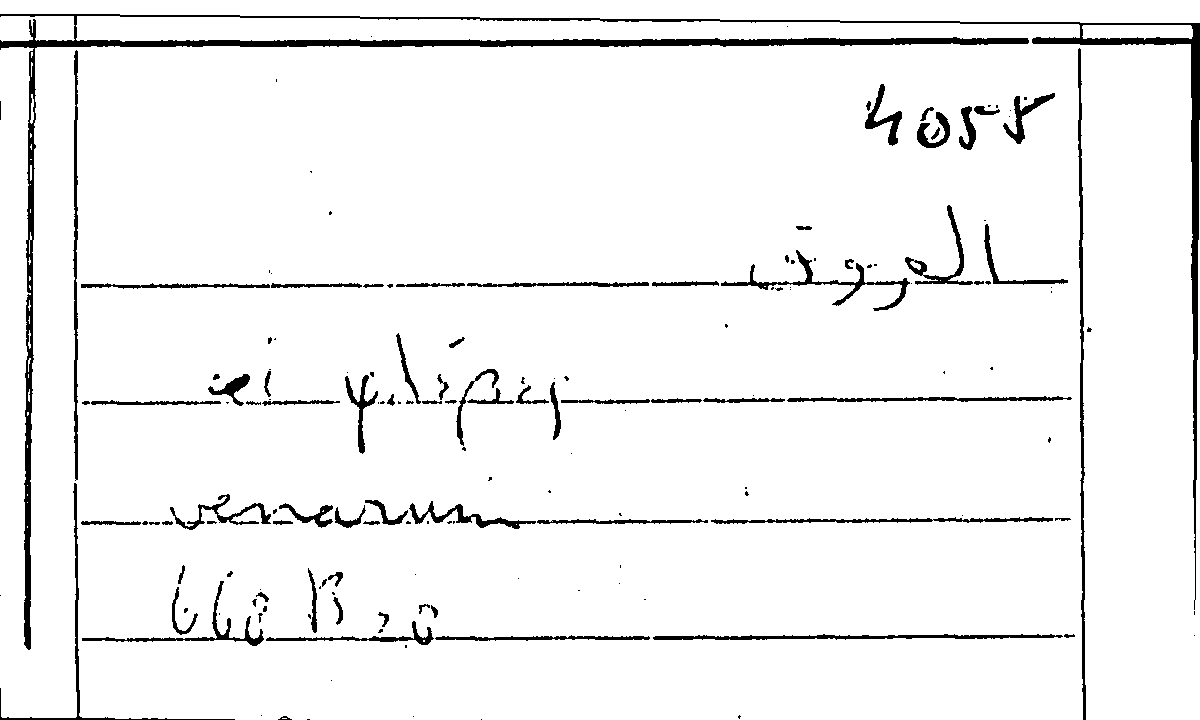 4055
العروق
αἱ φλέβες
venarum
668 B 20